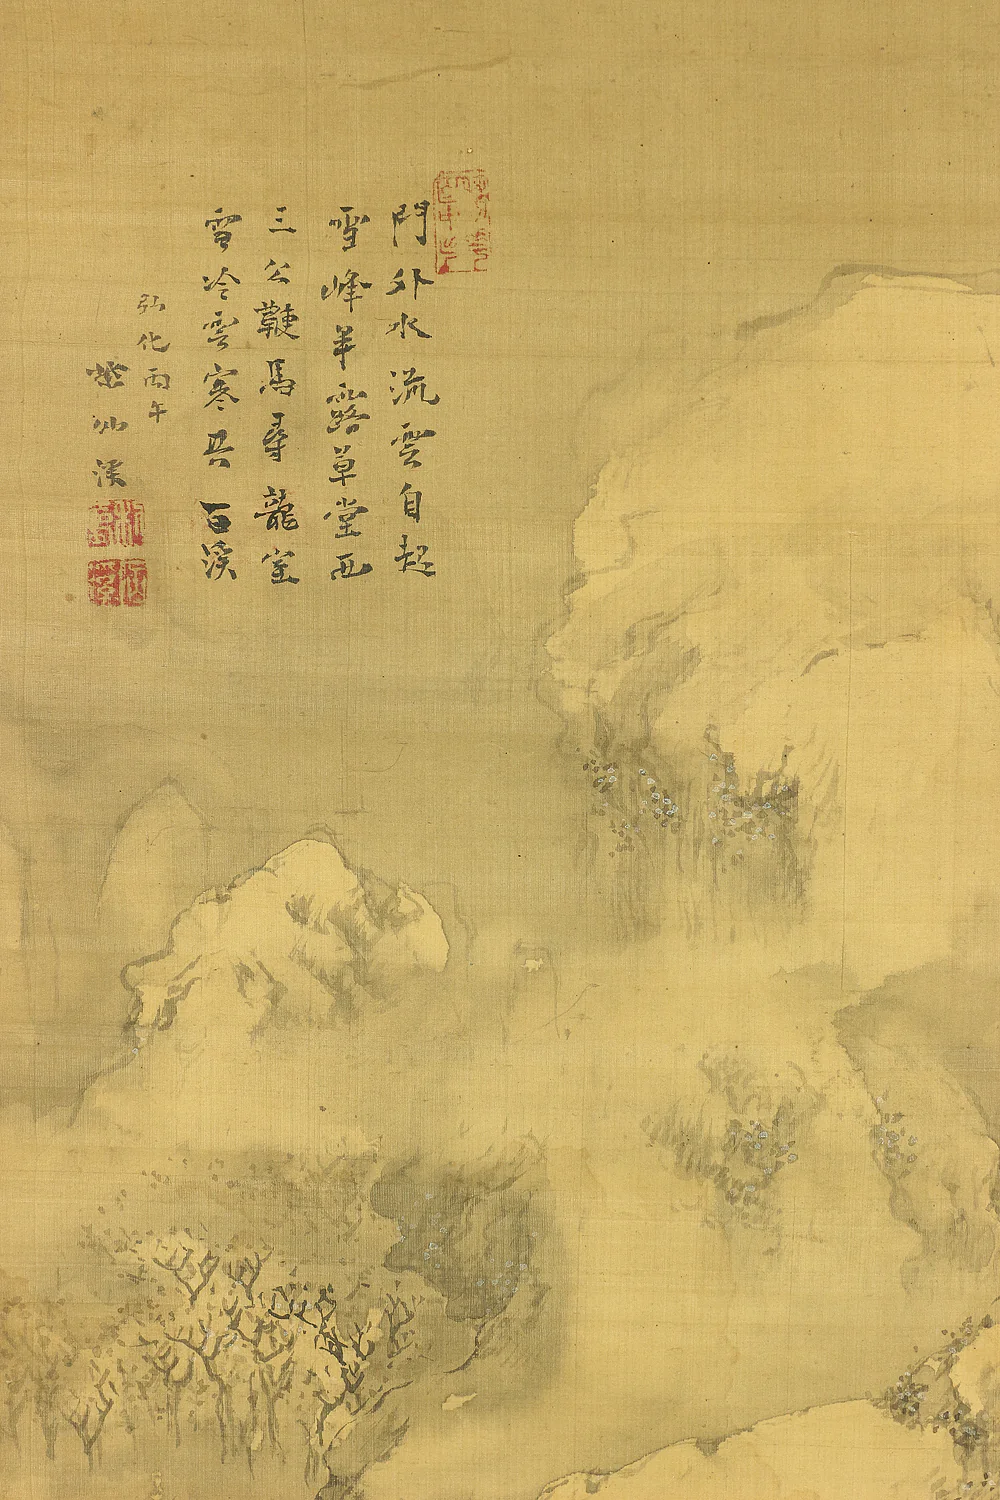 門外水流雲自起
雪峰半露草堂西
三公鞭馬尋龍室
雪冷雲寒共百溪
弘化丙午
紫仙溪